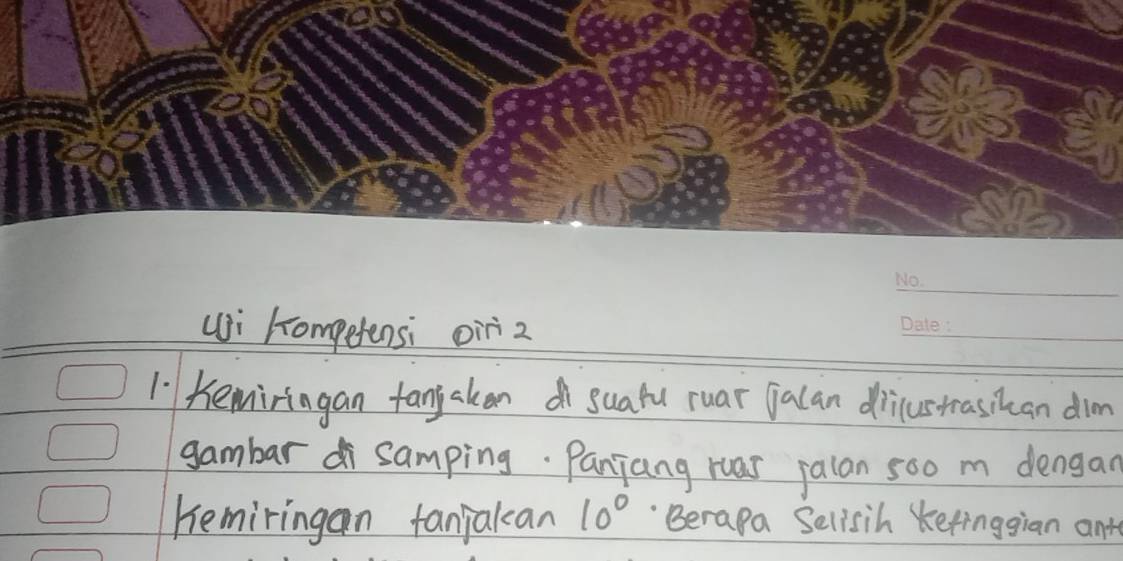 No.
Date :
Uji Kompetensi Diri 2
1. Kemiringan tanjakan di suatu ruar jalan diilustrasikan dlm
gambar di samping. Panjang ruas jalan 500 m dengan
Kemiringan tanjakan 10°. Berapa Selisih Ketinggian